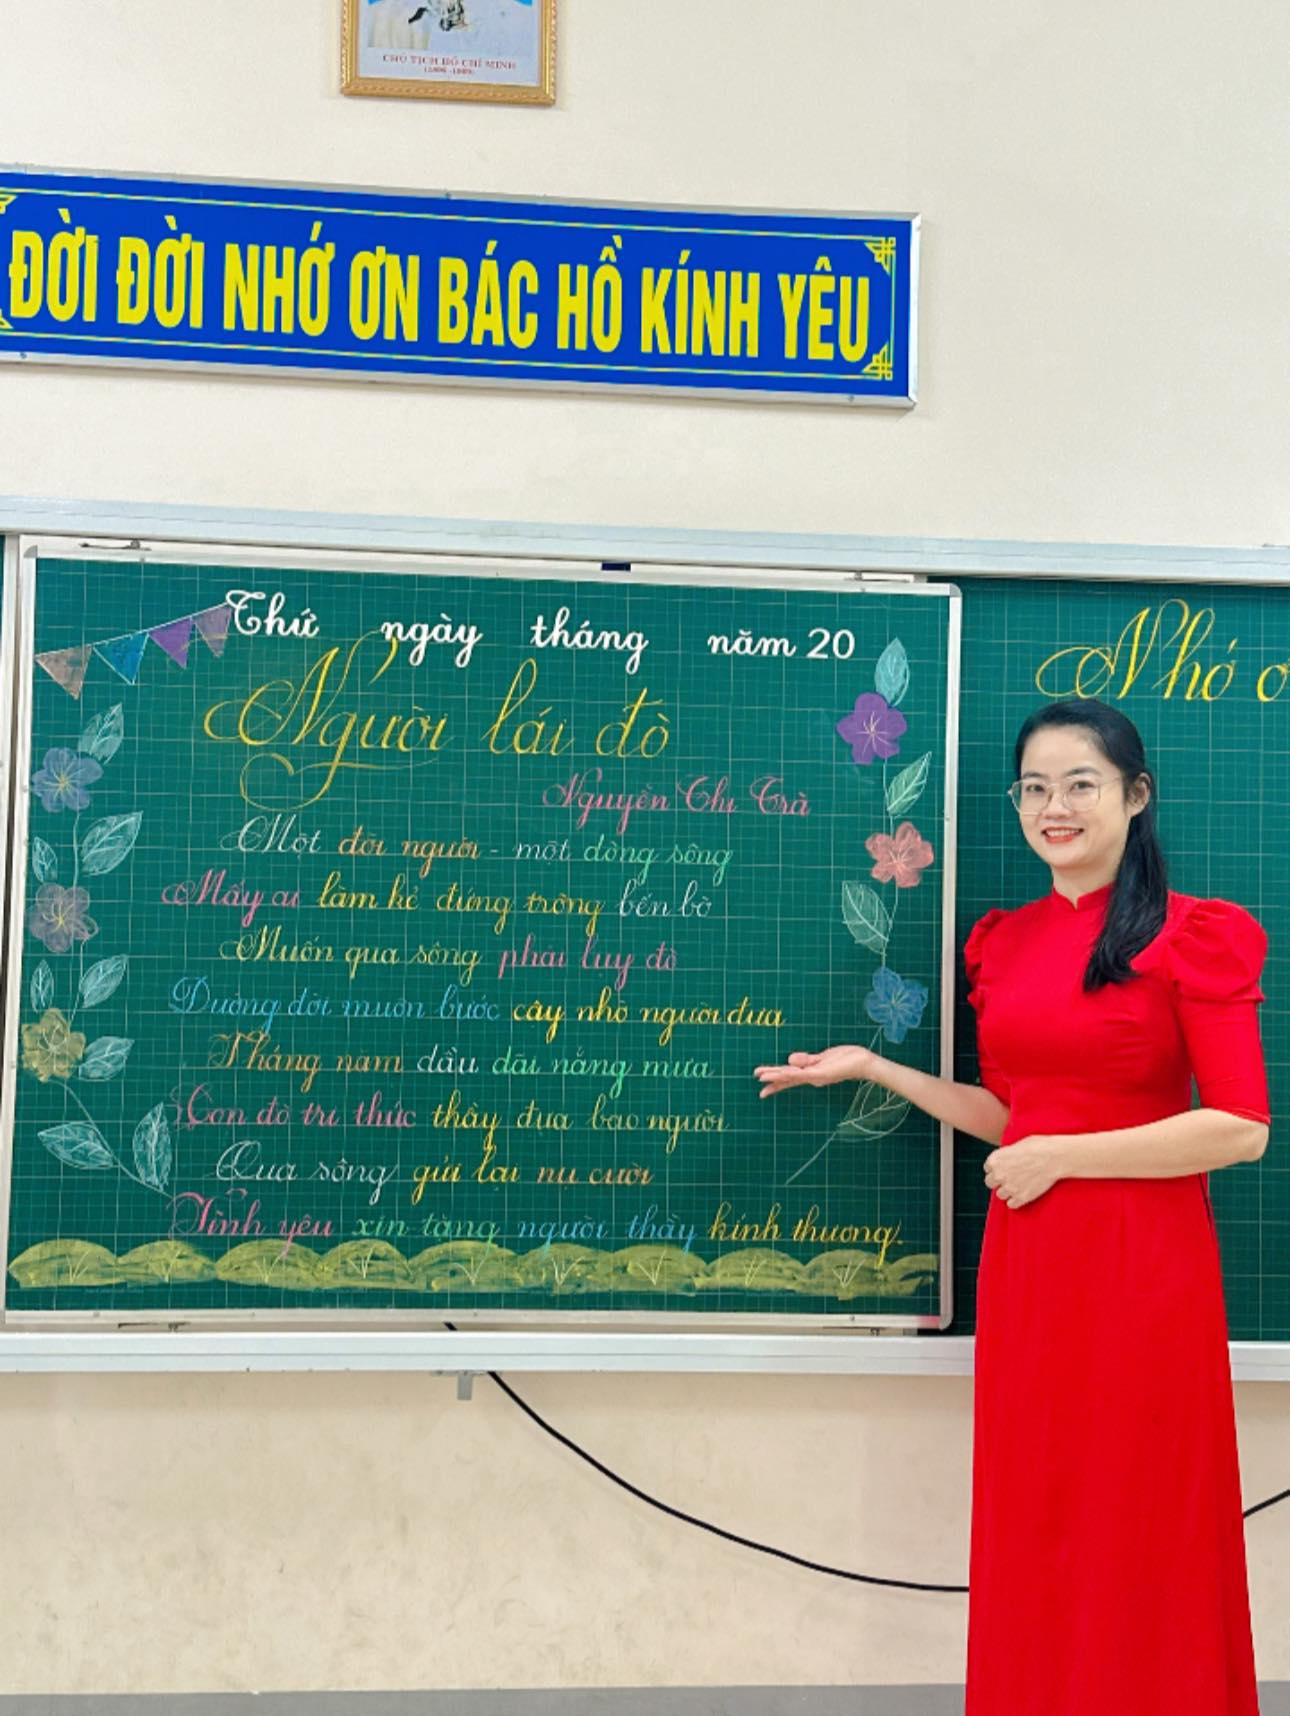 CHỦ TỊCH HỒ CHÍ MINH
ĐỜI ĐỜI NHỚ ƠN BÁC HỒ KÍNH YÊU
Thứ ngày tháng năm 20
Người lái đò
Nguyễn Thị Trà
Một đời người - một dòng sông
Mấy ai làm kẻ đứng trông bến bờ
Muốn qua sông phải luy đò
Đường đời muôn bước cậy nhờ người đưa
Tháng năm dầu dãi nắng mưa
Con đò tri thức thầy đưa bao người
Qua sông gửi lại nụ cười
Tình yêu xin tặng người thầy kính thương.
Nhớ ơ